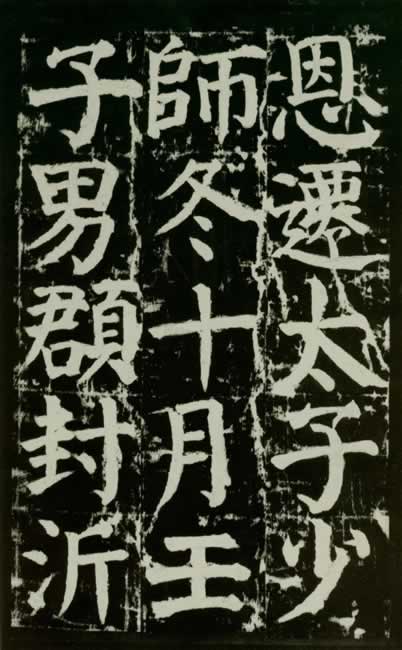 恩遷太子少
師冬十月壬
子男頵封沂